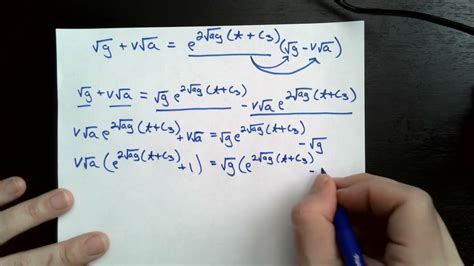 √g + v√a = e^{2√ag(t+C₃)}(√g - v√a)
√g + v√a = √g e^{2√ag(t+C₃)} - v√a e^{2√ag(t+C₃)}
v√a e^{2√ag(t+C₃)} + v√a = √g e^{2√ag(t+C₃)} - √g
v√a(e^{2√ag(t+C₃)} + 1) = √g(e^{2√ag(t+C₃)} -